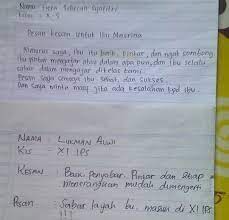 Nama : Fiera Sabrilah Syafitri
Kelas : X-3
Pesan kesan untuk Ibu Meirina
Menurut saya, Ibu itu baik, pintar, dan ngak sombong
Ibu pintar mengajar atau dalam apa pun, dan Ibu selalu
sabar dalam mengajar di kelas kami.
Pesan saya semoga Ibu sehat, dan sukses.
Dan saya minta maaf jika ada kesalahan kpd ibu.
NAMA : LUKMAN ALWI
KLS : XI IPS
KESAN : Baik, Penyabar, Pintar dan setiap
menerangkan mudah dimengerti
Pesan : Sabar layah bu, masuk di XI IPS
!!!